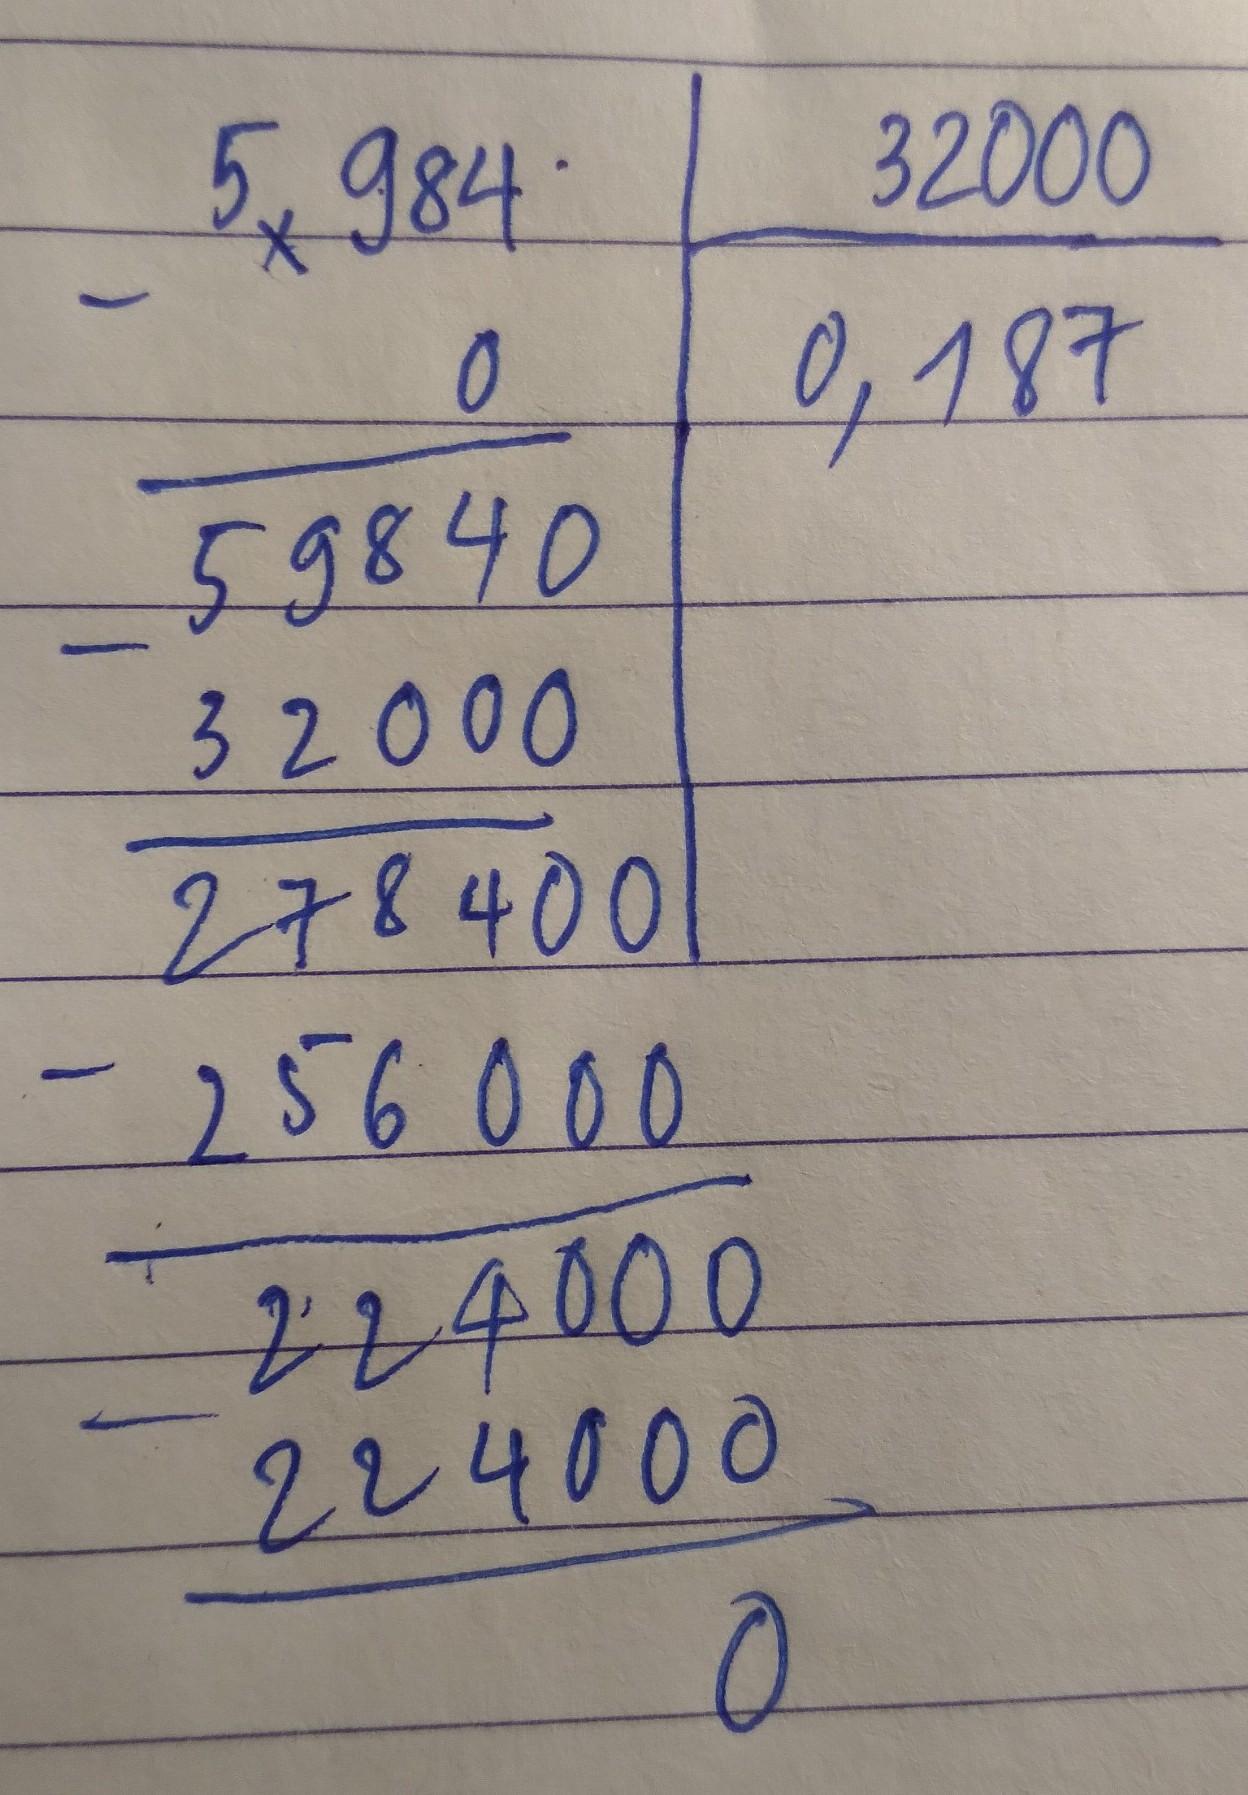 5 984 32000
- 0 0,187
59840
- 32000
278400
- 256000
224000
- 224000
0